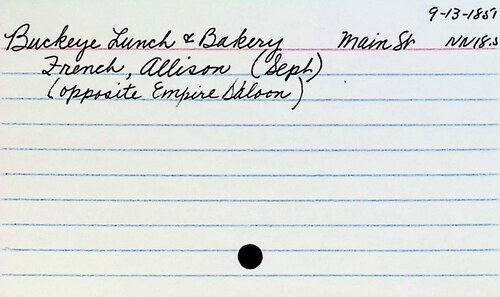 9-13-1851
Buckeye Lunch & Bakery Main St NN18.5
French, Allison (Sept)
(opposite Empire Saloon)